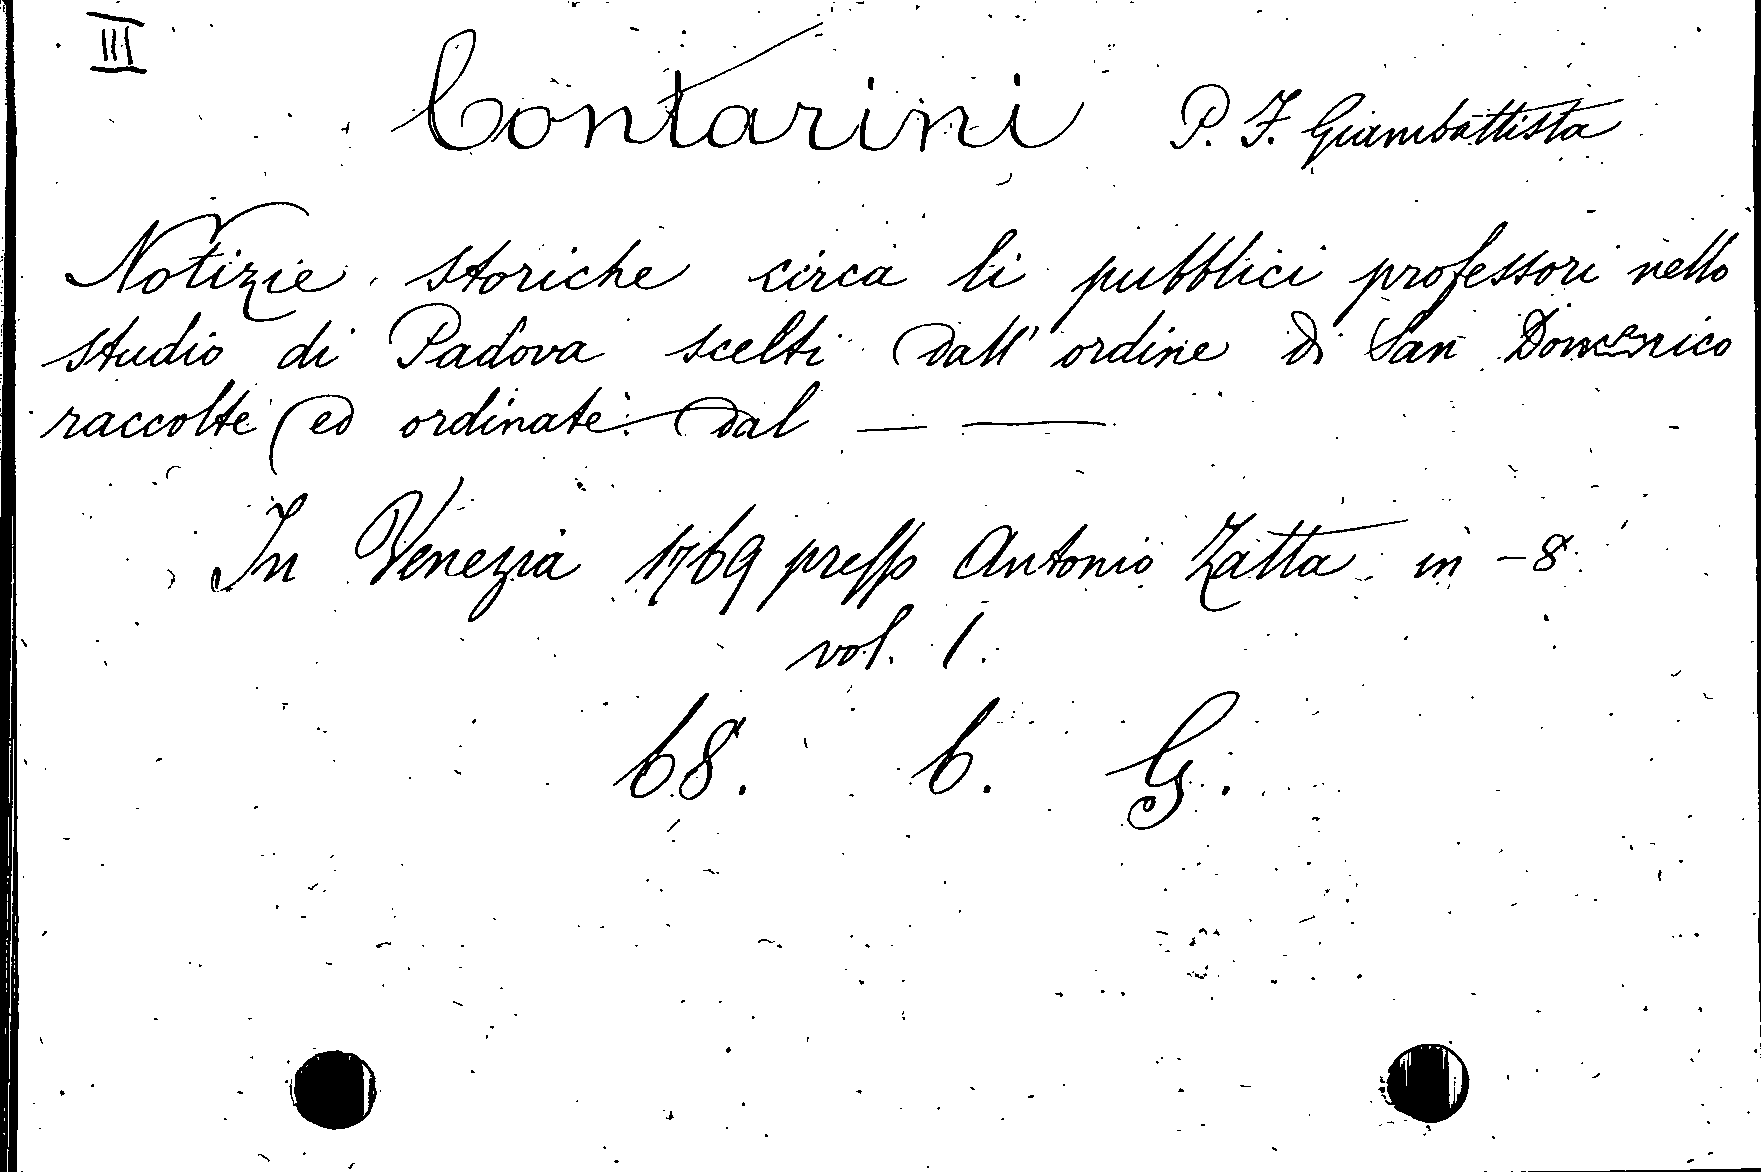 III
Contarini P. F. Giambattista
Notizie storiche circa li pubblici professori nello
studio di Padova scelti dall' ordine di San Domenico
raccolte ed ordinate dal — —
In Venezia 1769 presso Antonio Zatta in -8
vol. 1.
68. 6. G.